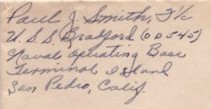 Paul J. Smith, F 1/c
U.S.S. Bradford (DD 545)
Naval Operating Base
Terminal Island
San Pedro, Calif.